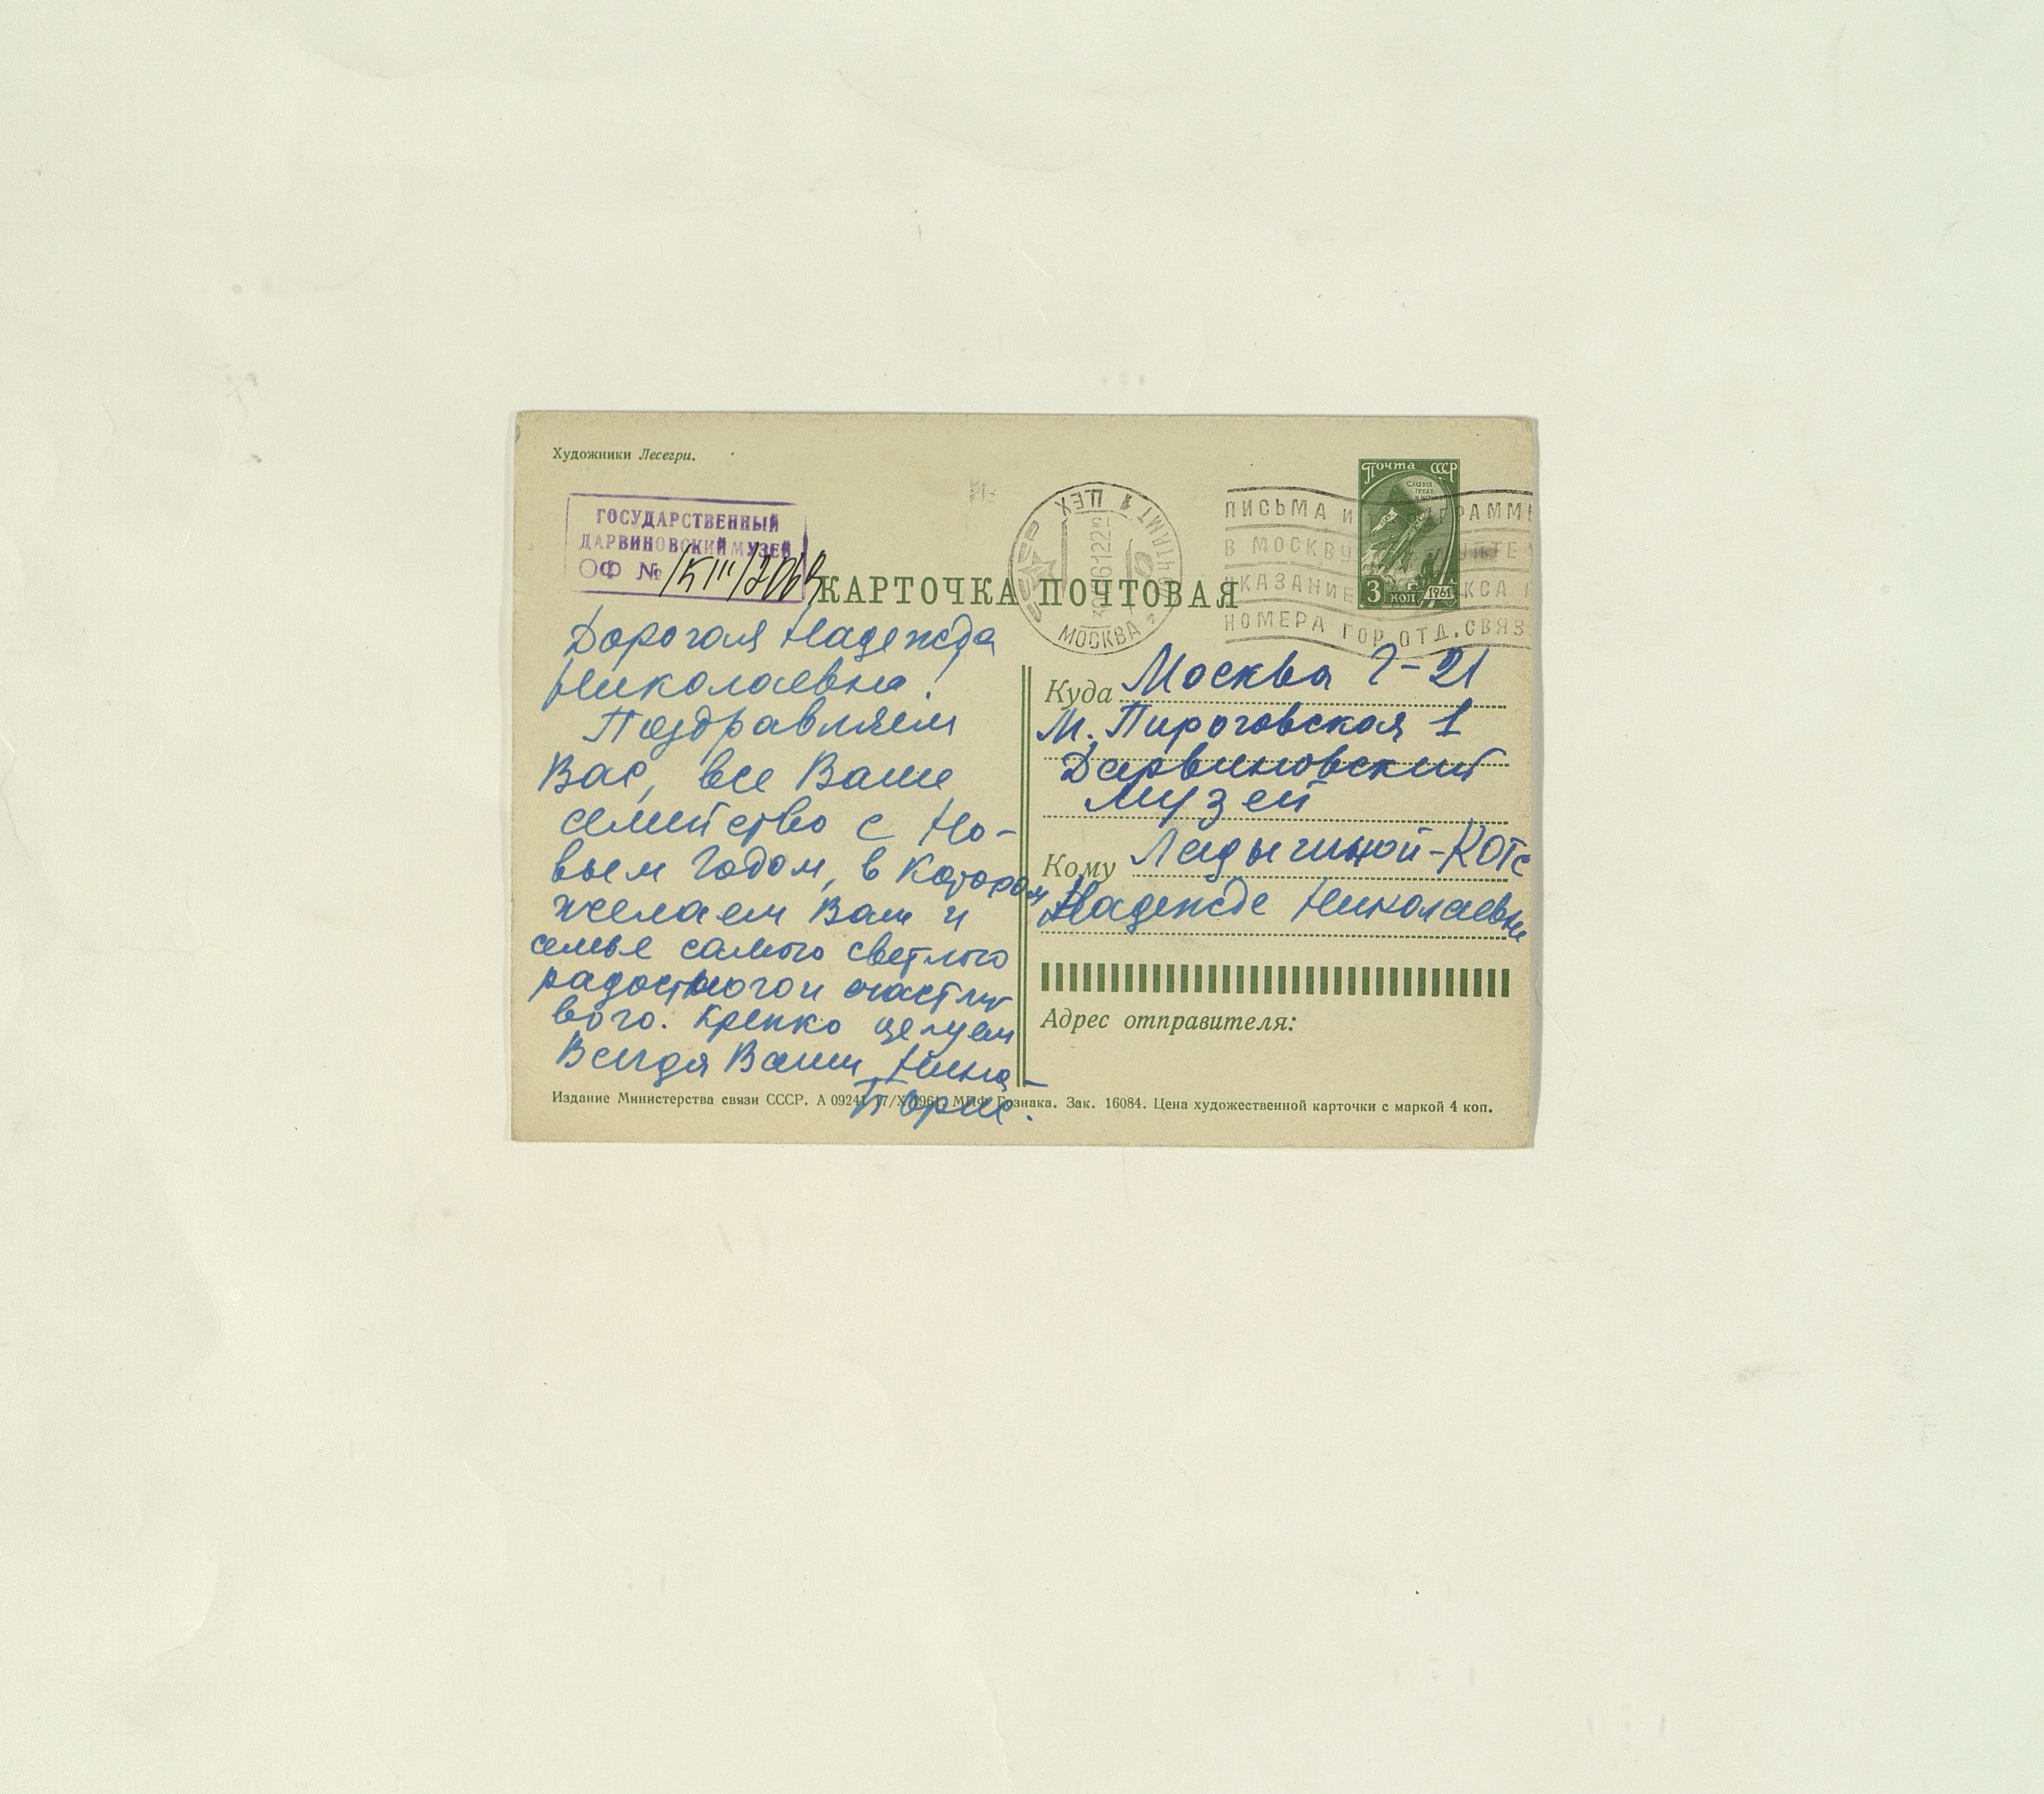 Художники Лесегри.
ГОСУДАРСТВЕННЫЙ
ДАРВИНОВСКИЙ МУЗЕЙ
ОФ №
КАРТОЧКА ПОЧТОВАЯ
МОСКВА
ПОЧТАМТ 1 ЦЕХ
СССР
ПИСЬМА И ГРАММЫ
В МОСКВУ
УКАЗАНИЕ
НОМЕРА ГОР.ОТД.СВЯЗ
Почта СССР
Слава
труду
3 коп 1961
Дорогая Надежда
Николаевна!
Поздравляем
Вас, все Ваше
семейство с Но-
вым Годом, в котором
желаем Вам и
семье самого светлого
радостного и счастли-
вого. Крепко целуем
Всегда Ваши Нина-
Борис.
Куда Москва Г-21
М. Пироговская 1
Дарвиновский
музей
Кому Ладыгиной-Котс
Надежде Николаевне
Адрес отправителя:
Издание Министерства связи СССР. А 09241 17/X 1961. МПФ Гознака. Зак. 16084. Цена художественной карточки с маркой 4 коп.